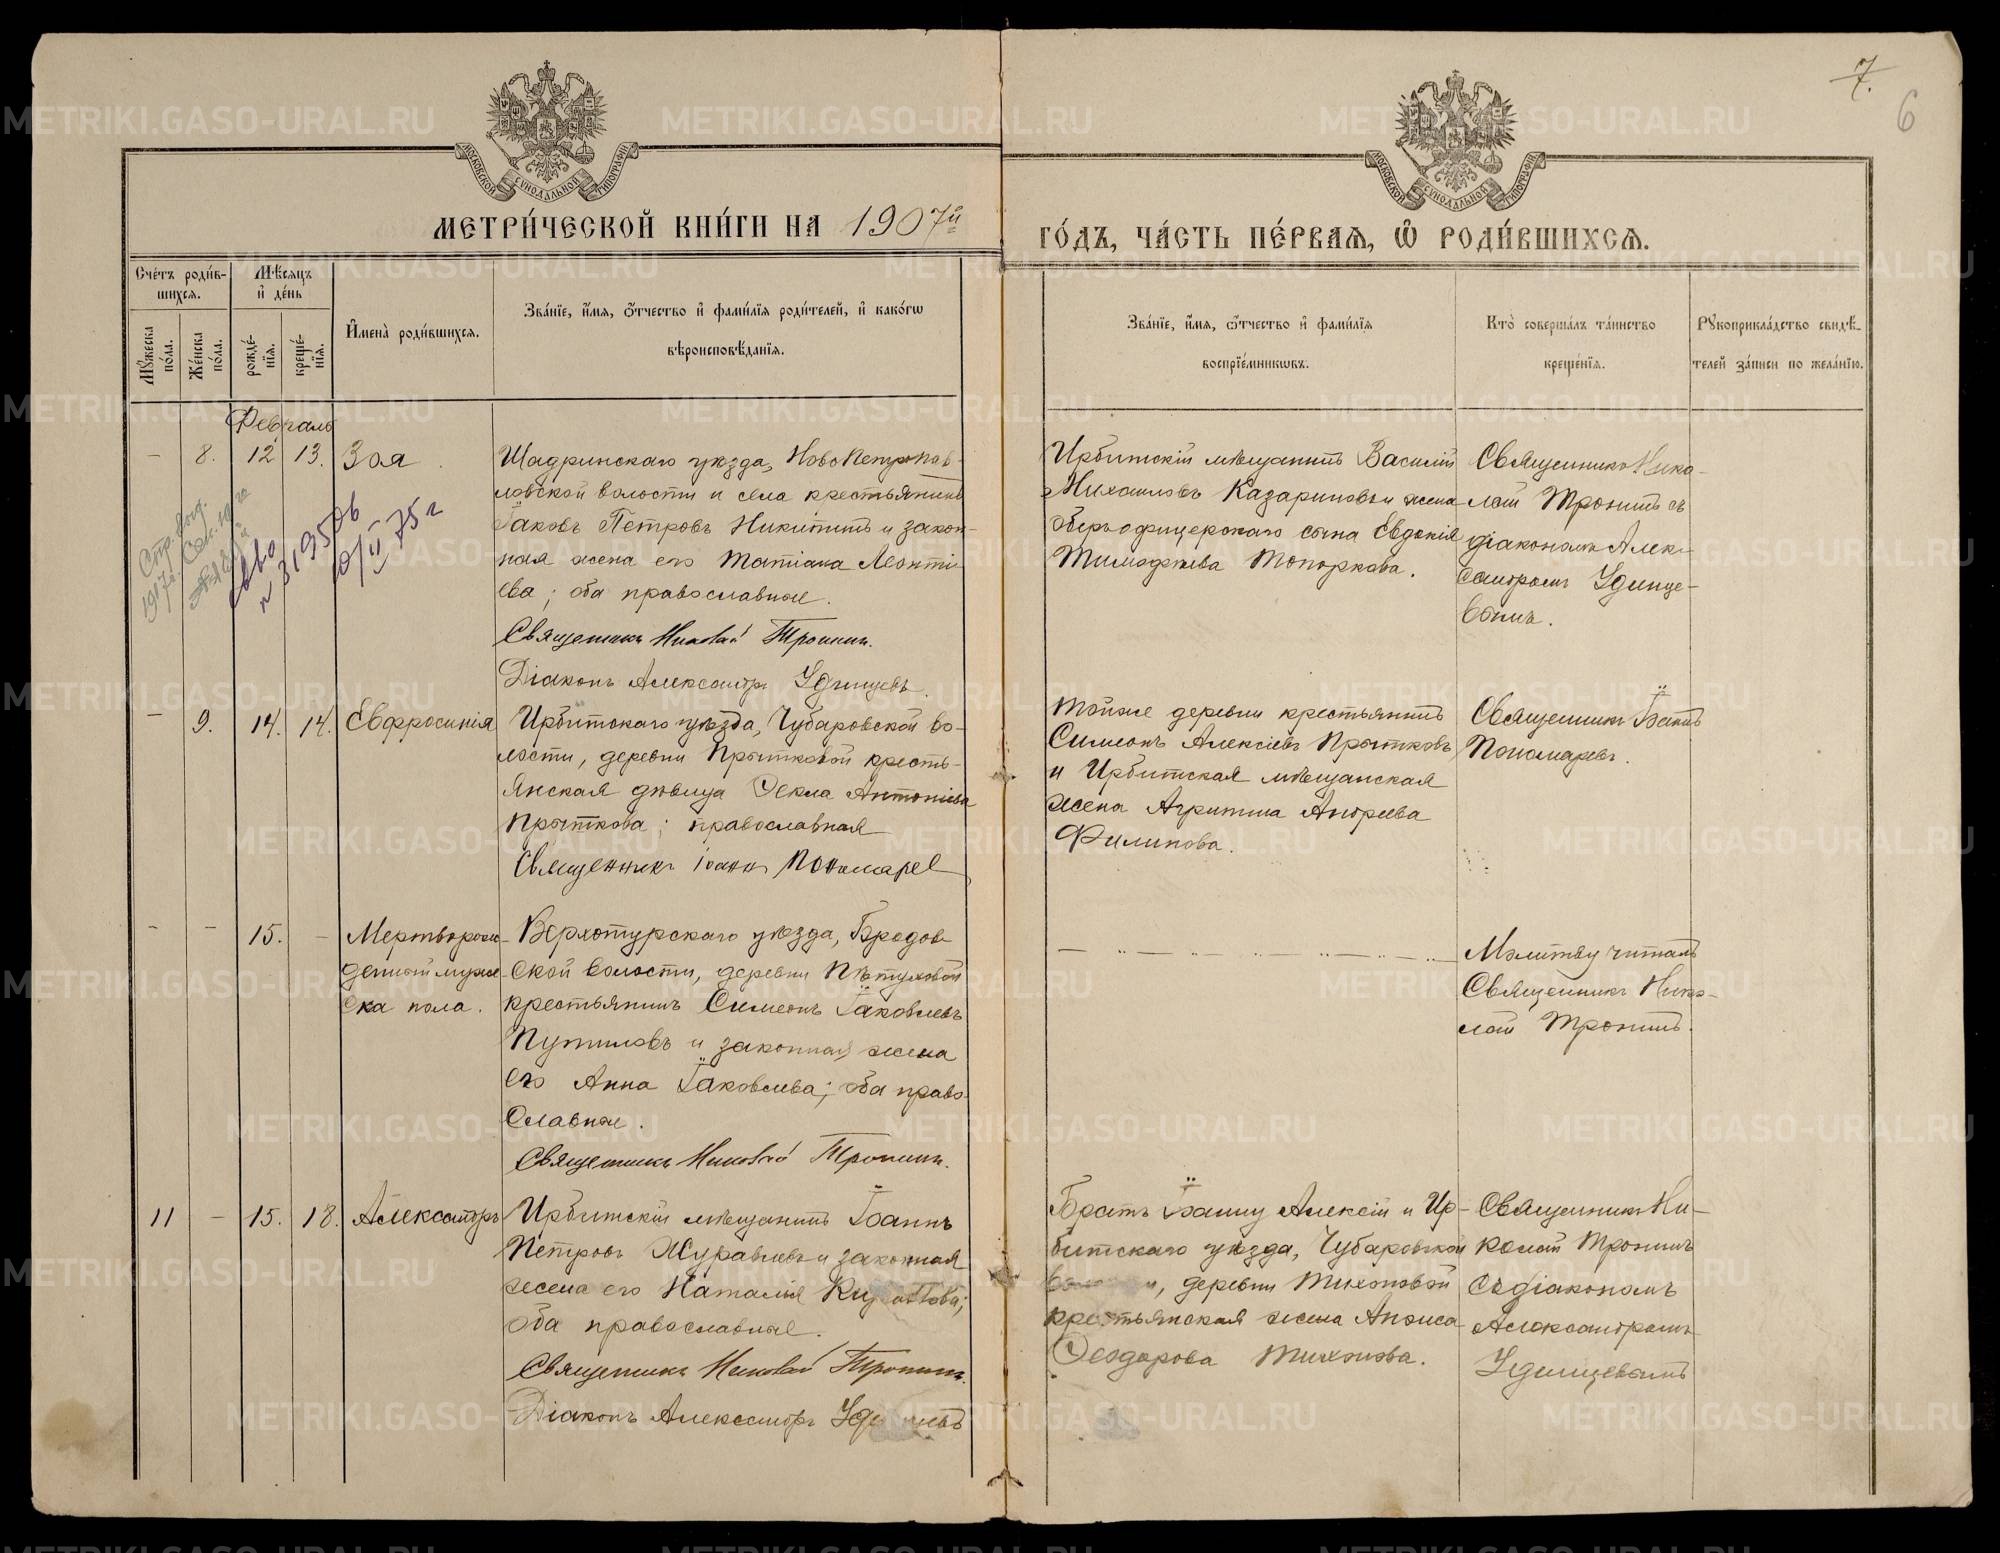 7.
6
МОСКОВСКОЙ СѴНОДАЛЬНОЙ ТИПОГРАФІИ
МОСКОВСКОЙ СѴНОДАЛЬНОЙ ТИПОГРАФІИ
МЕТРИ́ЧЕСКОЙ КНИ́ГИ НА 1907й
ГО́ДЪ, ЧА́СТЬ ПЕ́РВАЯ, Ѽ РОДИ́ВШИХСЯ.
Сче́тъ роди́в-
шихся.
Мѣ́сяцъ
и҆ де́нь
Мꙋ́жеска по́ла.
Же́нска по́ла.
рожде́-
нїя.
креще́-
нїя.
И҆мена̀ роди́вшихся.
Зва́нїе, и҆́мя, ѻ҆́тчество и҆ фами́лїя роди́телей, и҆ како́гѡ
вѣроисповѣ́данїя.
Зва́нїе, и҆́мя, ѻ҆́тчество и҆ фами́лїя
воспрїе́мникѡвъ.
Кто̀ соверша́лъ та́инство
креще́нїя.
Рꙋкоприкла́дство свидѣ́-
телей за́писи по жела́нїю.
Февраль
– 8. 12 13. Зоя.
Шадринскаго уѣзда, Новопетропав-
ловской волости и села крестьянинъ
Іаковъ Петровъ Никитинъ и закон-
ная жена его Татіана Леонті-
ева; оба православные.
Священникъ Николай Тронинъ.
Діаконъ Александръ Удинцевъ.
Ирбитскій мѣщанинъ Василій
Михаиловъ Казариновъ и жена
оберъ-офицерскаго сына Евдокія
Тимофѣева Топоркова.
Священникъ Нико-
лай Тронинъ съ
діакономъ Алек-
сандромъ Удинце-
вымъ.
Св-во
№ 319506
10/II 75 г
– 9. 14. 14. Евфросинія
Ирбитскаго уѣзда, Чубаровской во-
лости, деревни Прытковой кресть-
янская дѣвица Ѳекла Антоніева
Прыткова; православная
Священникъ Іоаннъ Пономарев
Тойже деревни крестьянинъ
Симеонъ Алексіевъ Прытковъ
и Ирбитская мѣщанская
жена Агриппина Андреева
Филипова.
Священникъ Іоаннъ
Пономаревъ.
– – 15. – Мертворож-
денный муже-
ска пола.
Верхотурскаго уѣзда, Бродов-
ской волости, деревни Пѣтуховой
крестьянинъ Симеонъ Іаковлевъ
Путиловъ и законная жена
его Анна Іаковлева; оба право-
славные.
Священникъ Николай Тронинъ.
Молитву читалъ
Священникъ Нико-
лай Тронинъ.
11 – 15. 18. Александръ
Ирбитскій мѣщанинъ Іоаннъ
Петровъ Журавлевъ и законная
жена его Наталія
оба православные.
Священникъ Николай Тронинъ.
Діаконъ Александръ Удинцевъ
Братъ Іоанну Алексій и Ир-
битскаго уѣзда, Чубаровской
волости, деревни Тихоновой
крестьянская жена Анфиса
Ѳеодорова Тихонова.
Священникъ Ни-
колай Тронинъ
съ діакономъ
Александромъ
Удинцевымъ
METRIKI.GASO-URAL.RU